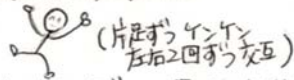 (片足ずつ ケンケン
左右2回ずつ交互)